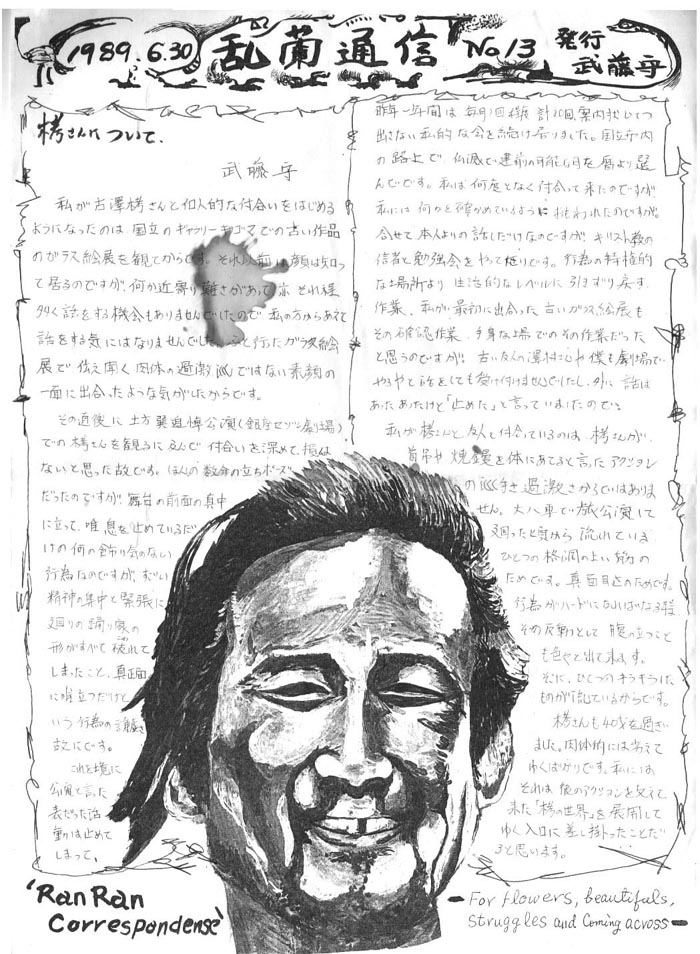 1989.6.30 乱蘭通信 No.13 発行 武藤守
栲さんについて、
武藤守
私が古澤栲さんと個人的な付合いをはじめる
ようになったのは 国立のギャラリーキゴマでの古い作品
のガラス絵展を観てからです。それ以前は顔は知って
て居るのですが、何か近寄り難さがあって 亦 それ程
多く話をする機会もありませんでしたので 私の方からあえて
話をする気にはなりませんでした。ふらと行ったガラス絵
展で 伝え聞く肉体の過激 ではない素顔の
一面に出合ったような気がしたからです。
その直後に 土方巽追悼公演(銀座セゾン劇場)
での栲さんを観るに及んで 付合いを深めて 損は
ないと思った故です。ほんの数分の立ちポーズ
だったのですが! 舞台の前面の真中
に立って、唯 息を止めているだ
けの何の飾り気のない
行為なのですが、
精神の集中と緊張に
廻りの踊り家の
形がすべて破れて
しまったこと、真正面
に唯立つだけと
いう行為の
故にです。
これを境に
公演と言った
表だった活
動は止めて
しまって、
昨年一年間は 毎月 回程 計20回、案内状ひとつ
出さない私的な会を続け居りました。国立市内
の路上で、仏滅で建前の可能な日を暦より選
んでです。私は何度となく付合って来たのですが
私には 何かを確かめているように 思われたのですが。
合せて本人よりの話しだけなのですが キリスト教の
信者と勉強会をやって居りです。行為の特権的
な場所より 生活的なレベルに引きずり戻す
作業、私が最初に出合った古いガラス絵展も
その確認作業、手身な場でのその作業だった
と思うのですが! 古い友人の澤村 や 僕も劇場で
やろやと話をしても受け付けませんでしたし、外に 話は
あったあったけど「止めた」と言っていましたので。
私が栲さんと友人と付合っているのは 栲さんが、
首吊や焼鏝を体にあてると言ったアクションに
の 過激さからではありま
せん。大八車で旅公演して
廻った頃から 流れている
ひとつの格調のよい 筋の
ためです。真面目さのためです。
行為がハードになればなる程
その反動として 腹の立つこと
も色々と出て来ます。
そこに、ひとつのキラキラした
ものが流れているからです。
栲さんも40才を過ぎい
ました。肉体的には衰えて
ゆくばかりです。私には
それは 彼のアクションを支えて
来た「栲の世界」を展開して
ゆく入口に差し掛ったことだ
ろと思います。
'Ran Ran
Correspondense'
— For flowers, beautifuls,
struggles and Coming across —